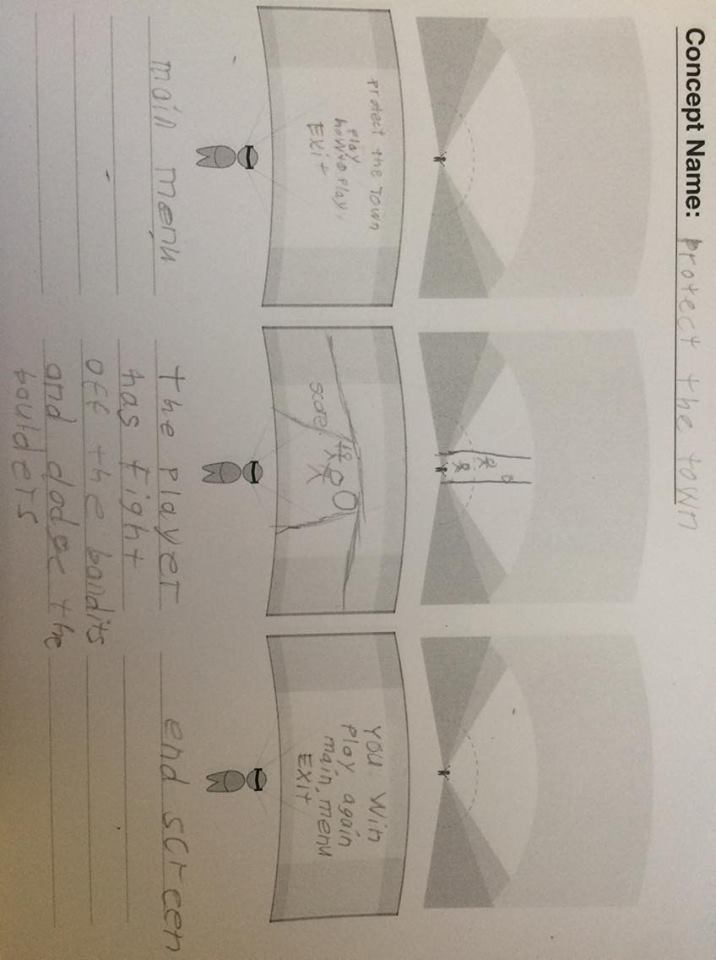 Concept Name: protect the town
protect the town
play
how to play
Exit
main menu
score:
the player
has fight
off the bandits
and dodge the
boulders
You Win
play again
main menu
Exit
end screen